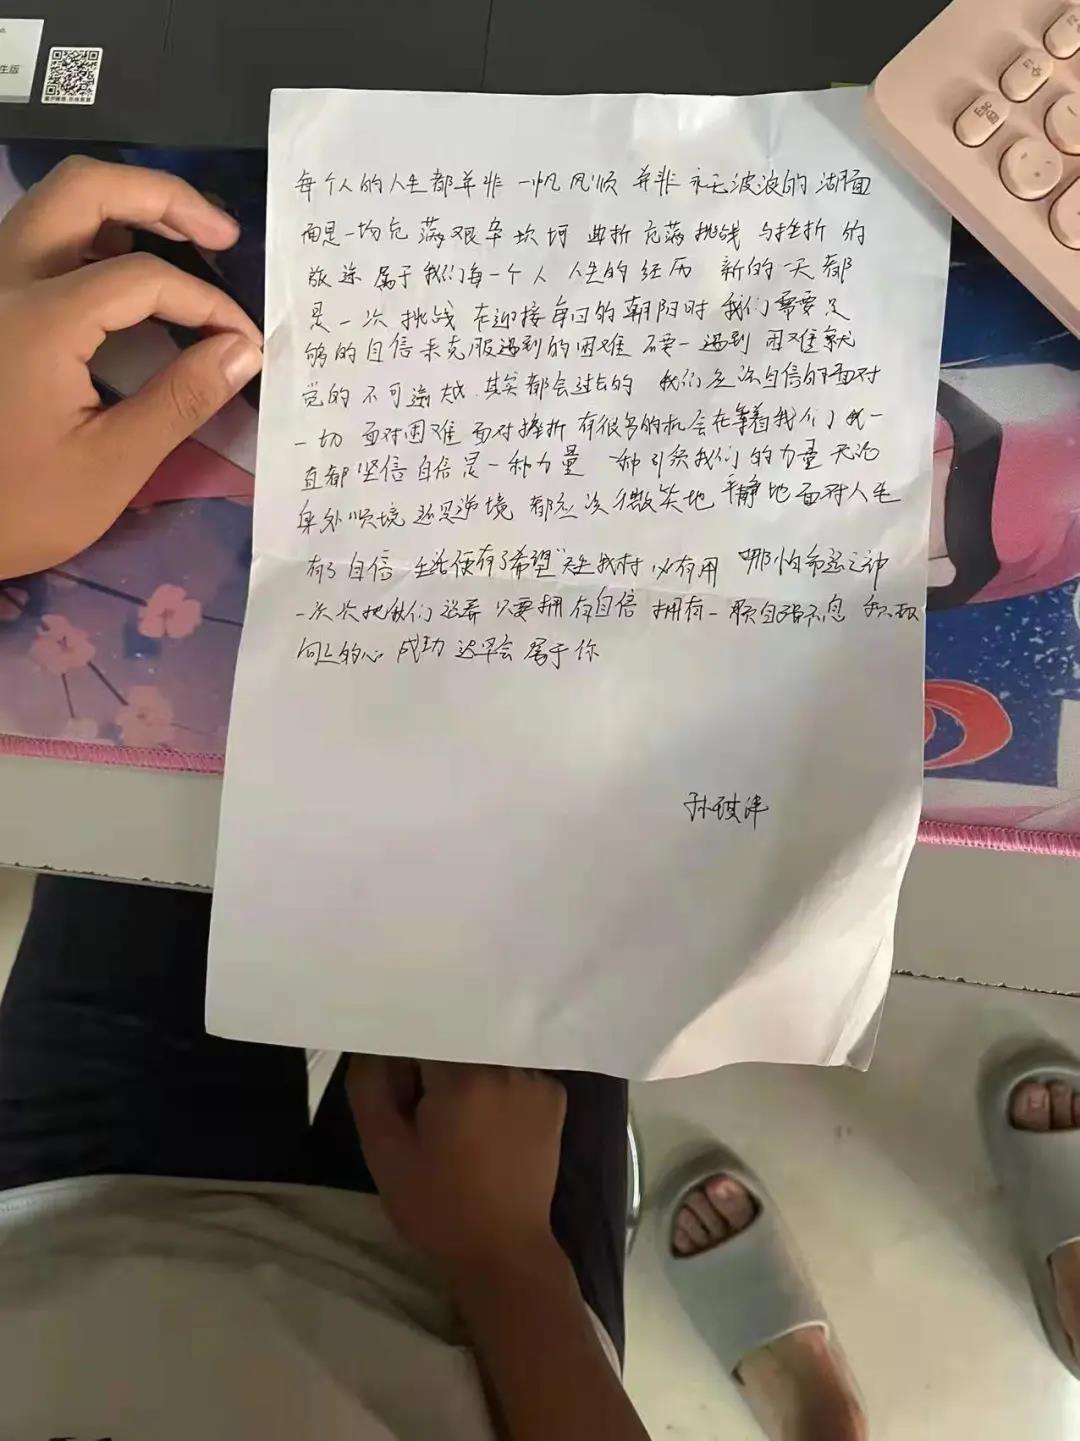 生版
每个人的人生都并非一帆风顺 并非永无波浪的湖面
而是一场充满艰辛坎坷 曲折充满挑战与挫折的
旅途 属于我们每一个人 人生的经历 新的一天都
是一次挑战 在迎接每日的朝阳时 我们需要足
够的自信来克服遇到的困难 不要一遇到困难就
觉的不可逾越 其实都会过去的 我们应该自信的面对
一切 面对困难 面对挫折 有很多的机会在等着我们 我一
直都坚信自信是一种力量 一种引领我们的力量 无论
身处顺境还是逆境 都应该微笑地 平静地面对人生
有了自信 生活便有了希望"天生我材必有用 哪怕命运之神
一次次把我们 只要拥有自信 拥有一颗自强不息 积极
向上的心 成功迟早会属于你
孙琪
ESC